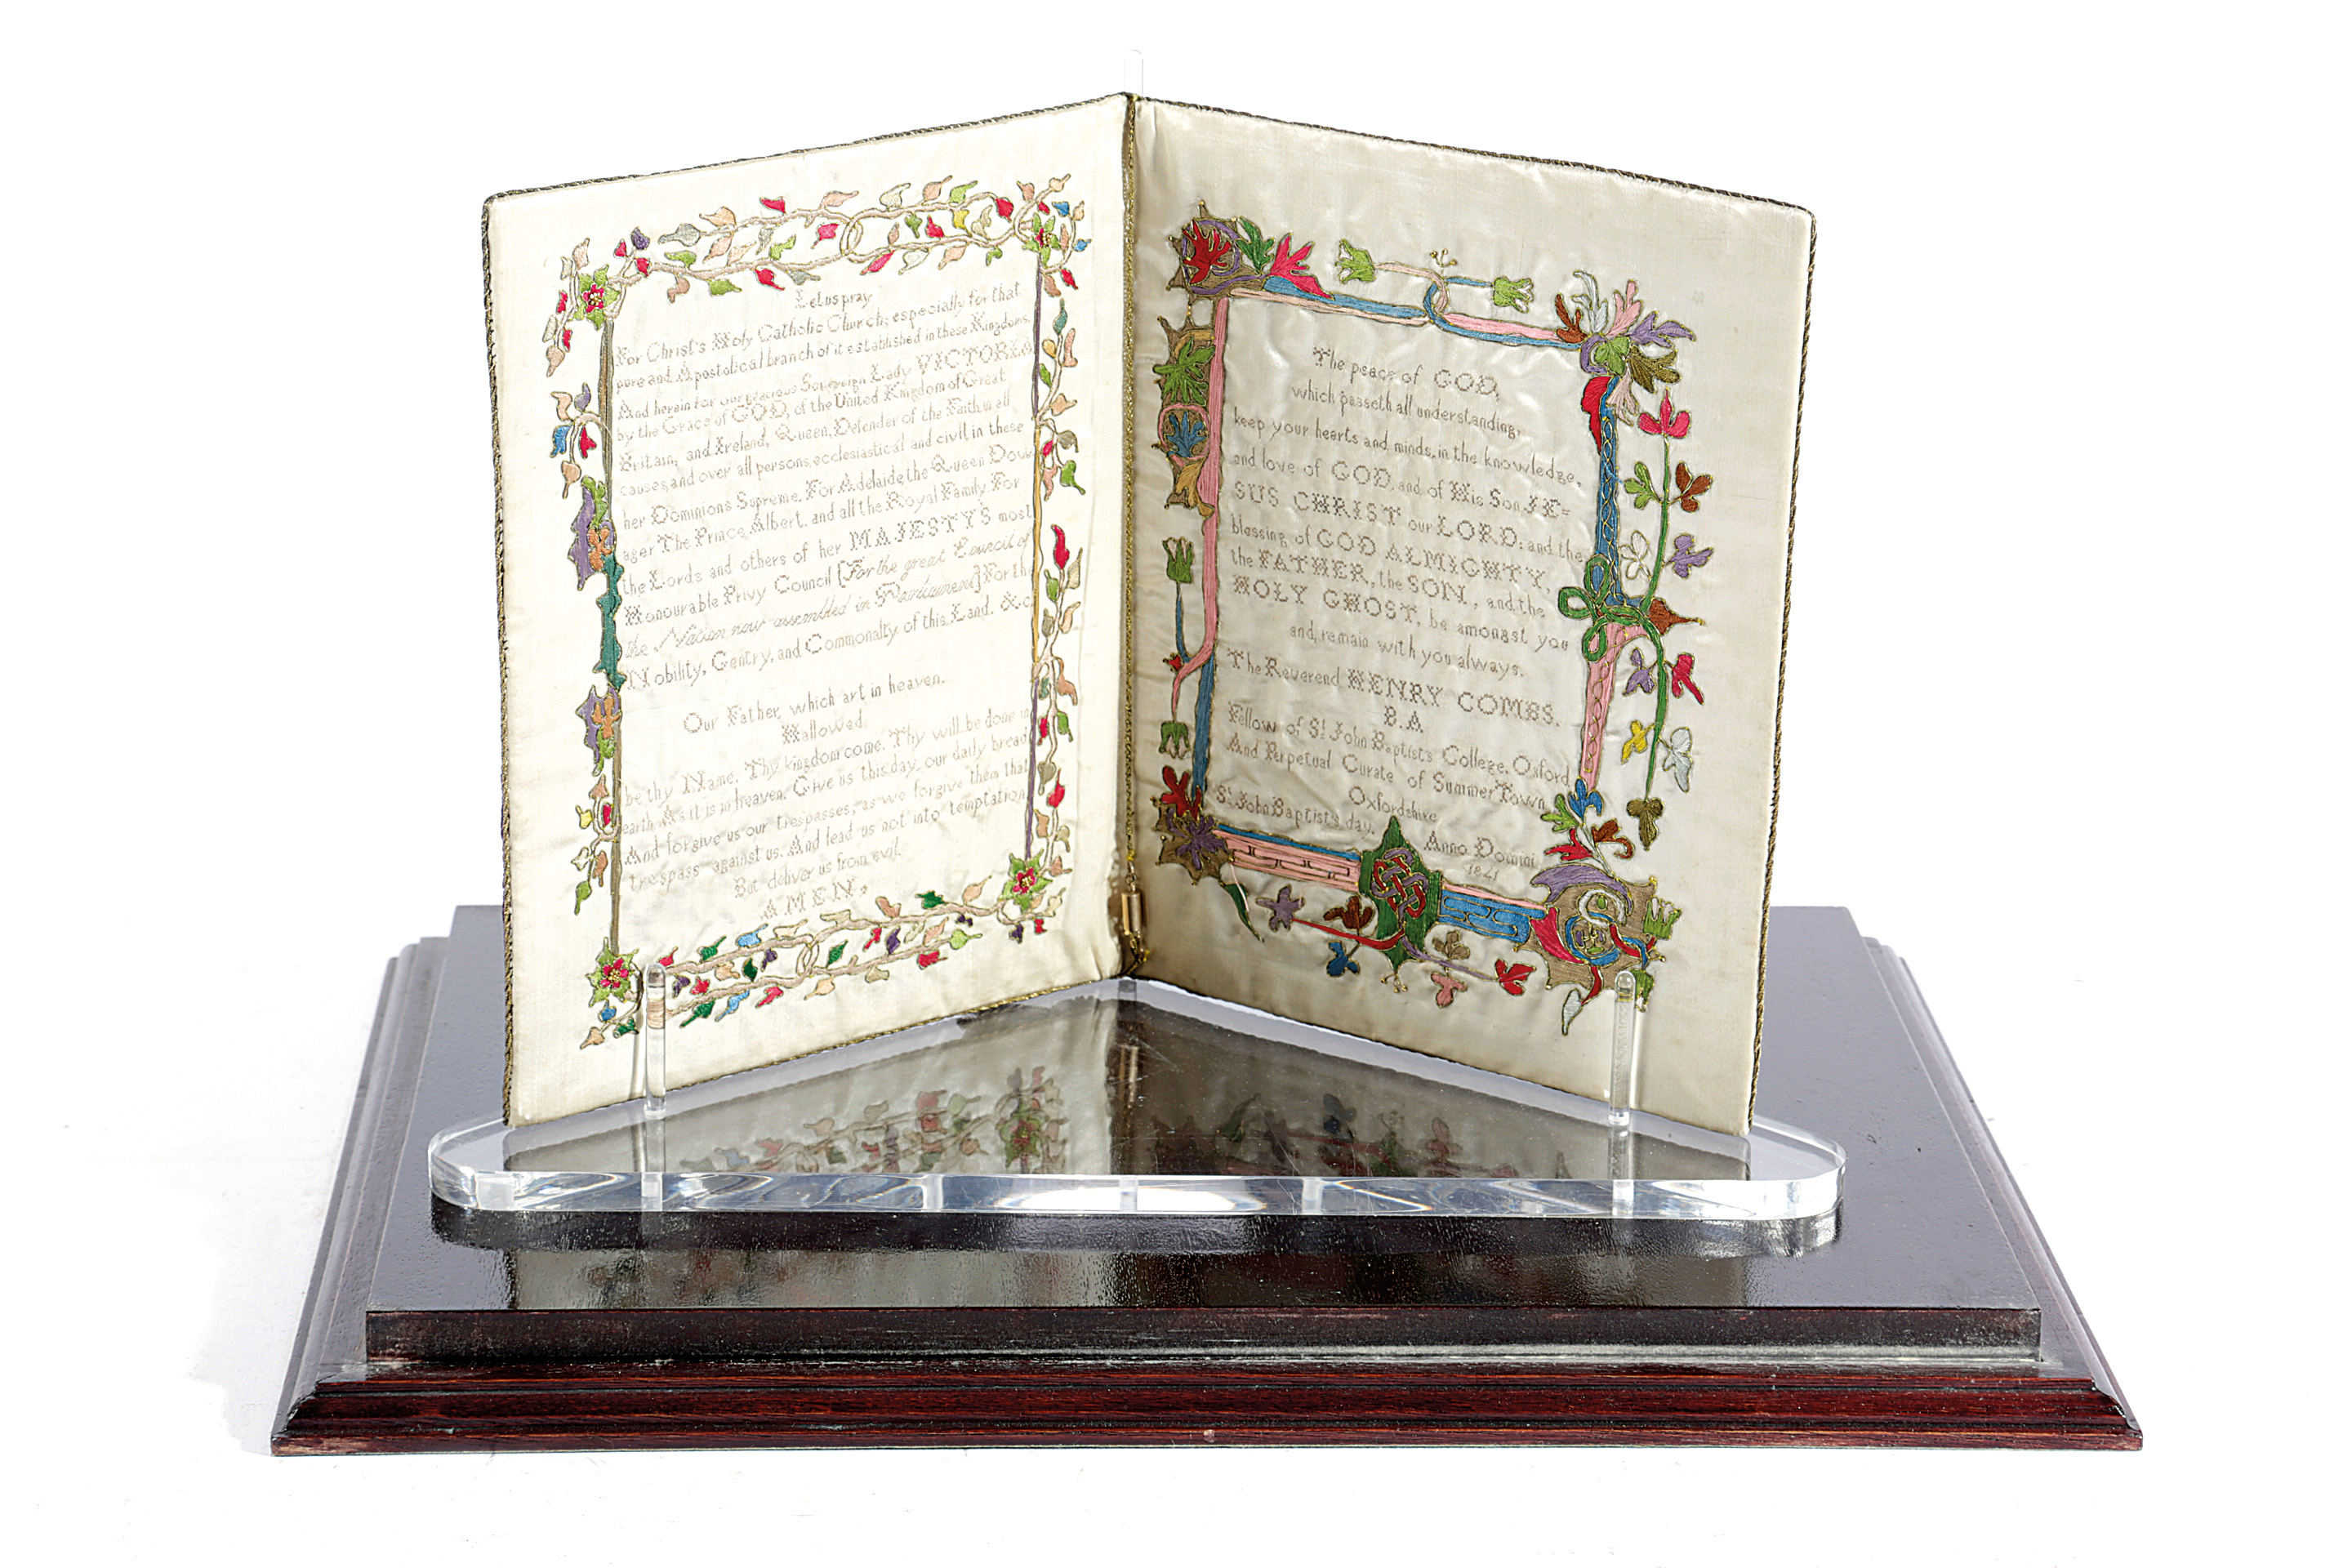 Let us pray
For Christ's Holy Catholic Church; especially for that
pure and Apostolical branch of it established in these Kingdoms.
And herein for our gracious Sovereign Lady VICTORIA
by the Grace of GOD, of the United Kingdom of Great
Britain, and Ireland, Queen, Defender of the Faith in all
causes, and over all persons, ecclesiastical and civil in these
her Dominions Supreme. For Adelaide the Queen Dow-
ager The Prince Albert, and all the Royal Family. For
the Lords and others of her MAJESTY'S most
Honourable Privy Council [For the great Council of
the Nation now assembled in Parliament] For the
Nobility, Gentry, and Commonalty of this Land. &c.
Our Father, which art in heaven.
Hallowed,
be thy Name. Thy kingdom come. Thy will be done in
earth As it is in heaven. Give us this day, our daily bread
And forgive us our trespasses, as we forgive them that
trespass against us. And lead us not into temptation,
But deliver us from evil.
AMEN.
The peace of GOD,
which passeth all understanding,
keep your hearts and minds, in the knowledge,
and love of GOD, and of His Son JE=
SUS CHRIST our LORD: and the
blessing of GOD ALMIGHTY,
the FATHER, the SON, and the
HOLY GHOST, be amongst you
and, remain with you always.
The Reverend HENRY COMBS.
B.A
Fellow of St John Baptist's College, Oxford
And Perpetual Curate of Summer Town
Oxfordshire
St John Baptist's day. Anno Domini
1841